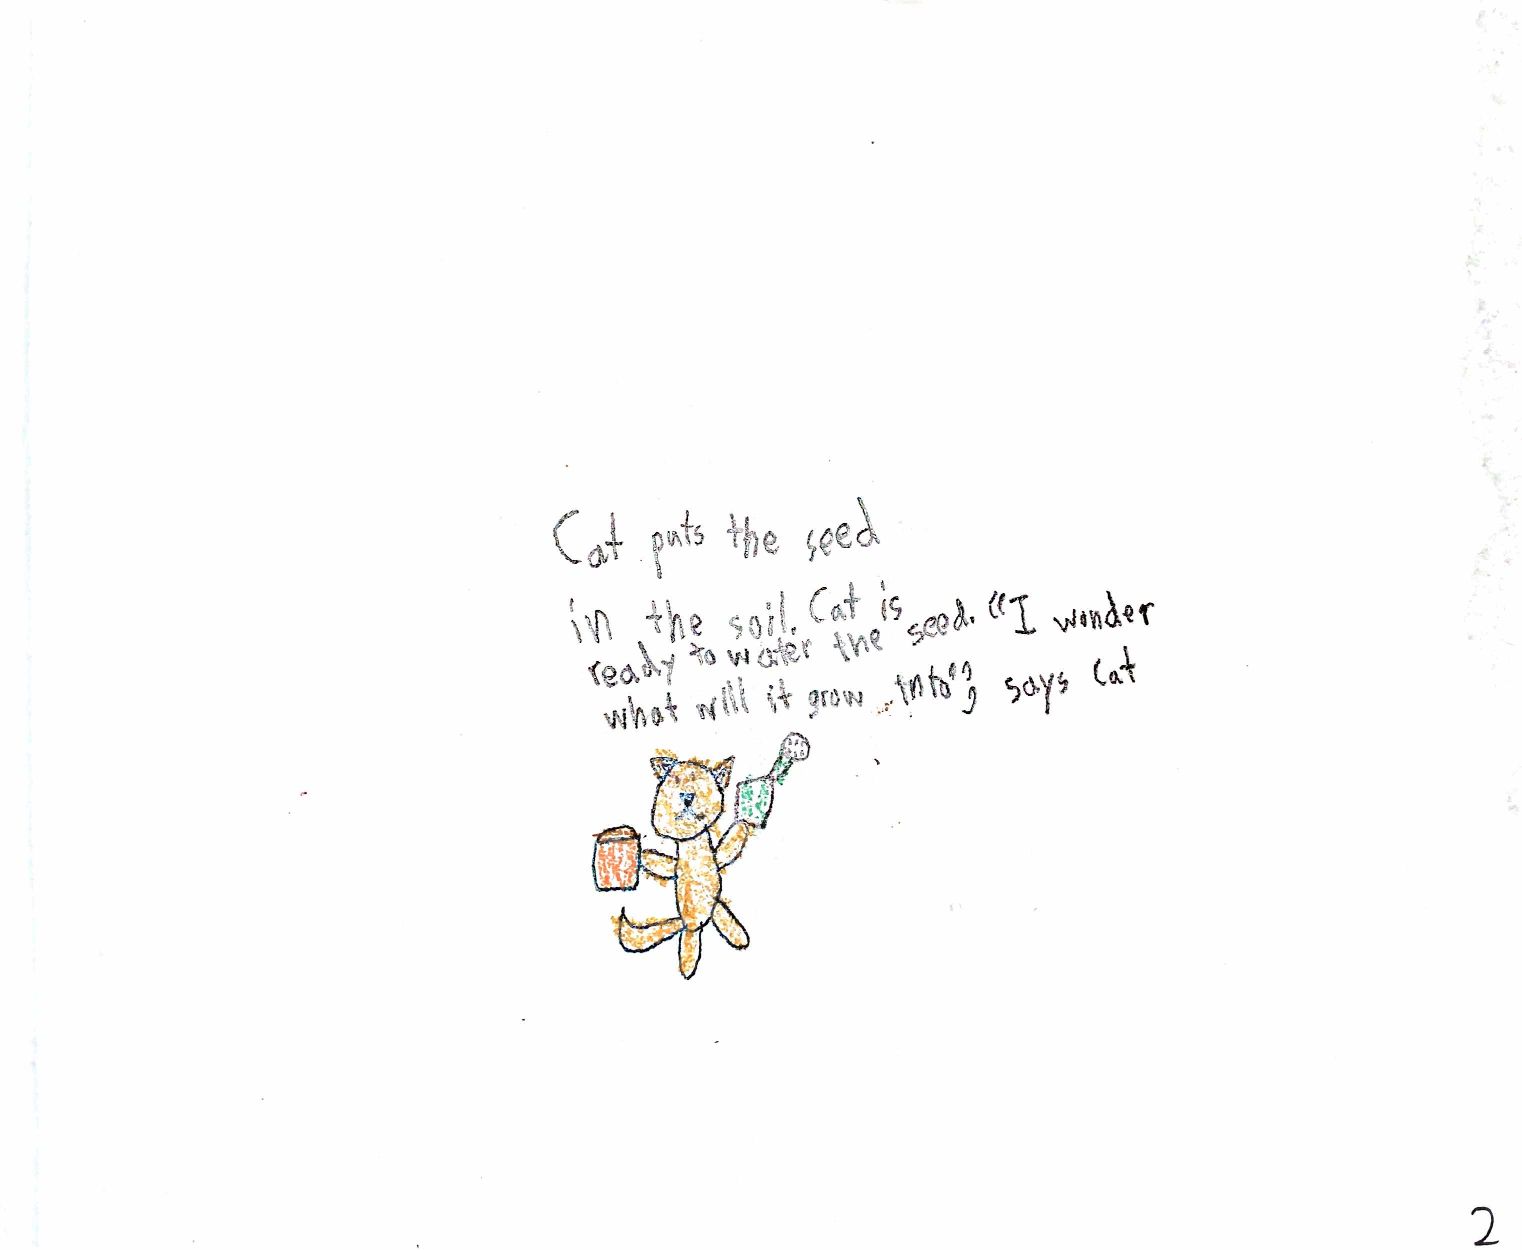 Cat puts the seed
in the soil. Cat is
ready to water the seed. "I wonder
what will it grow into", says Cat
2